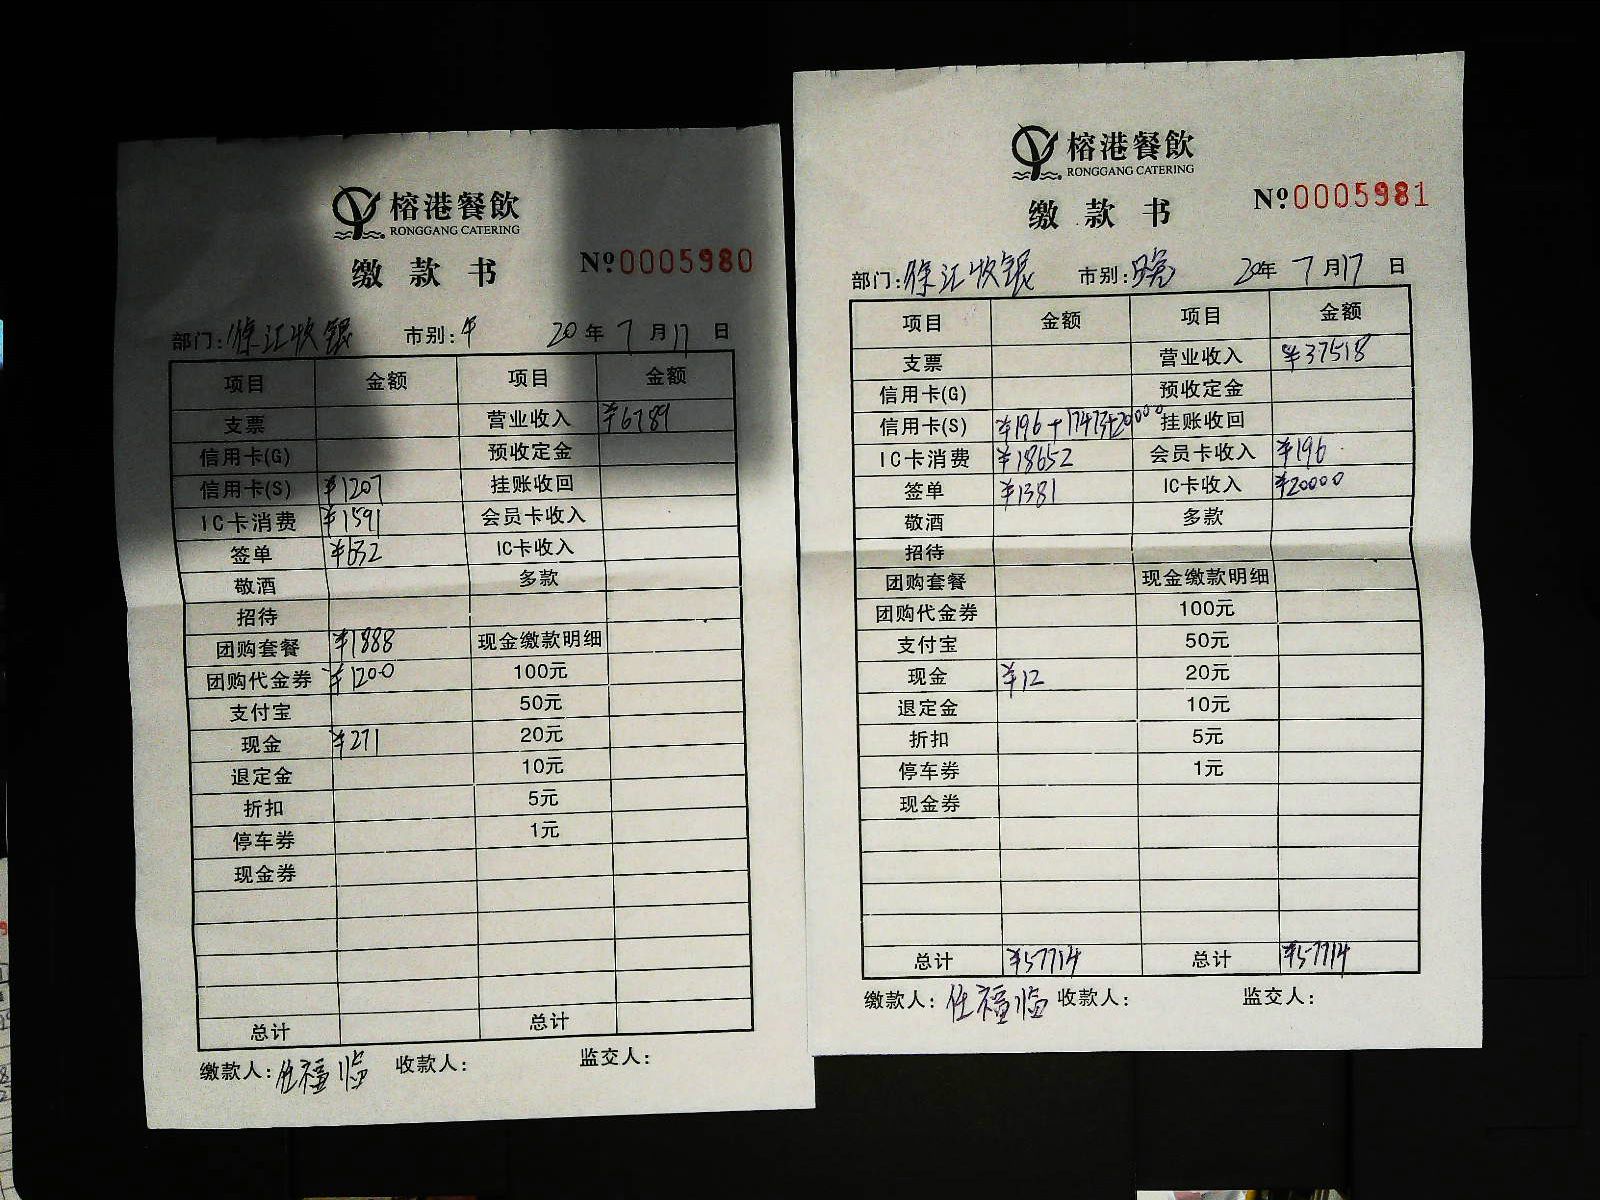 榕港餐飲
RONGGANG CATERING
缴款书
Nº0005980
部门:徐汇收银 市别:午 20年7月17日
项目 金额 项目 金额
支票 营业收入 ¥6789
信用卡(G) 预收定金
信用卡(S) ¥1207 挂账收回
IC卡消费 ¥1591 会员卡收入
签单 ¥632 IC卡收入
敬酒 多款
招待
团购套餐 ¥1888 现金缴款明细
团购代金券 ¥1200 100元
支付宝 50元
现金 ¥271 20元
退定金 10元
折扣 5元
停车券 1元
现金券
总计 总计
缴款人:任福临 收款人: 监交人:
榕港餐飲
RONGGANG CATERING
缴款书
Nº0005981
部门:徐汇收银 市别:晚 20年7月17日
项目 金额 项目 金额
支票 营业收入 ¥37518
信用卡(G) 预收定金
信用卡(S) ¥196+17473+20000 挂账收回
IC卡消费 ¥18652 会员卡收入 ¥196
签单 ¥1381 IC卡收入 ¥20000
敬酒 多款
招待
团购套餐 现金缴款明细
团购代金券 100元
支付宝 50元
现金 ¥12 20元
退定金 10元
折扣 5元
停车券 1元
现金券
总计 ¥57714 总计 ¥57714
缴款人:任福临 收款人: 监交人: